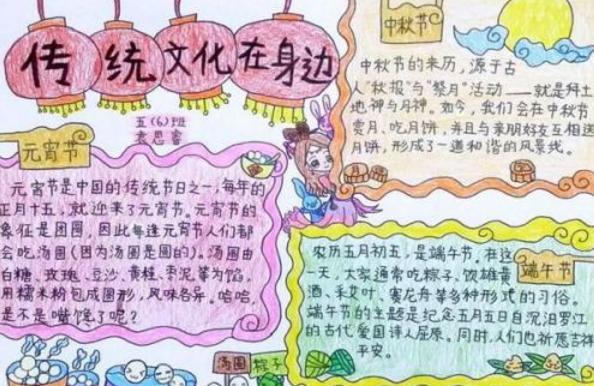 传统文化在身边
五(6)班
袁思睿
元宵节
元宵节是中国的传统节日之一,每年的
正月十五,就迎来了元宵节。元宵节的
象征是团圆,因此每逢元宵节人们都
会吃汤圆(因为汤圆是圆的)。汤圆由
白糖、玫瑰、豆沙、黄桂、枣泥等为馅,
用糯米粉包成圆形,风味各异。哈哈,
是不是嘴馋了呢?
中秋节
中秋节的来历,源于古
人"秋报"与"祭月"活动——就是拜土
地神与月神。如今,我们会在中秋节
赏月、吃月饼,并且与亲朋好友互相送
月饼,形成了一道和谐的风景线。
端午节
农历五月初五,是端午节,在这
一天,大家通常吃粽子、饮雄黄
酒、采艾叶、赛龙舟等多种形式的习俗。
端午节的主题是纪念五月五日自沉汨罗江
的古代爱国诗人屈原。同时,人们也祈愿吉祥
平安。
汤圆
粽子